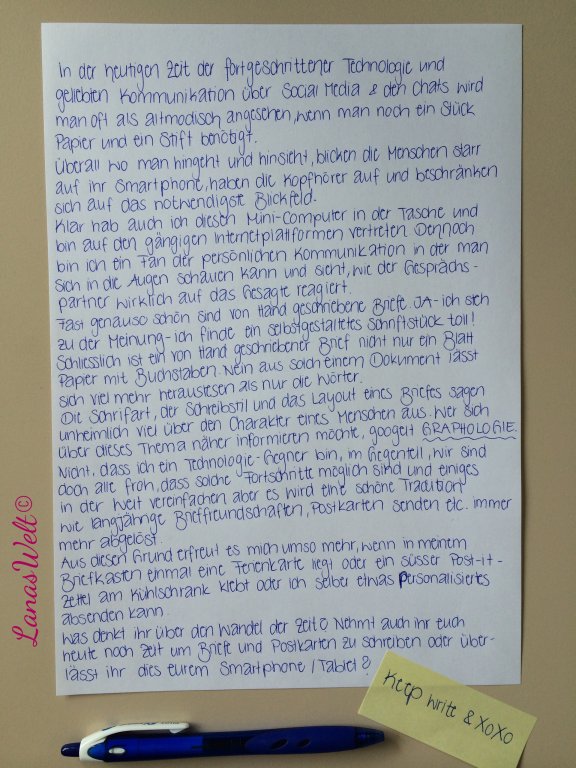 In der heutigen Zeit der fortgeschrittener Technologie und
geliebten Kommunikation über Social Media & den Chats wird
man oft als altmodisch angesehen, wenn man noch ein Stück
Papier und ein Stift benötigt.
Überall wo man hingeht und hinsieht, blicken die Menschen starr
auf ihr Smartphone, haben die Kopfhörer auf und beschränken
sich auf das notwendigste Blickfeld.
Klar hab auch ich diesen Mini-Computer in der Tasche und
bin auf den gängigen Internetplattformen vertreten. Dennoch
bin ich ein Fan der persönlichen Kommunikation in der man
sich in die Augen schauen kann und sieht, wie der Gesprächs-
partner wirklich auf das Gesagte reagiert.
Fast genauso schön sind von Hand geschriebene Briefe. JA-ich steh
zu der Meinung-ich finde ein selbstgestaltetes Schriftstück toll!
Schliesslich ist ein von Hand geschriebener Brief nicht nur ein Blatt
Papier mit Buchstaben. Nein aus solch einem Dokument lässt
sich viel mehr herauslesen als nur die Wörter.
Die Schrifart, der Schreibstil und das Layout eines Briefes sagen
unheimlich viel über den Charakter eines Menschen aus. Wer sich
über dieses Thema näher informieren möchte, googelt GRAPHOLOGIE.
Nicht, dass ich ein Technologie-Gegner bin, im Gegenteil, wir sind
doch alle froh, dass solche Fortschritte möglich sind und einiges
in der Welt vereinfachen aber es wird eine schöne Tradition
wie langjährige Brieffreundschaften, Postkarten senden etc. immer
mehr abgelöst.
Aus diesen Grund erfreut es mich umso mehr, wenn in meinem
Briefkasten einmal eine Ferienkarte liegt oder ein süsser Post-it-
Zettel am Kühlschrank klebt oder ich selber etwas Personalisiertes
absenden kann.
Was denkt ihr über den Wandel der Zeit? Nehmt auch ihr euch
heute noch Zeit um Briefe und Postkarten zu schreiben oder über-
lässt ihr dies eurem Smartphone / Tablet?
Keep write & XoXo
LanasWelt©